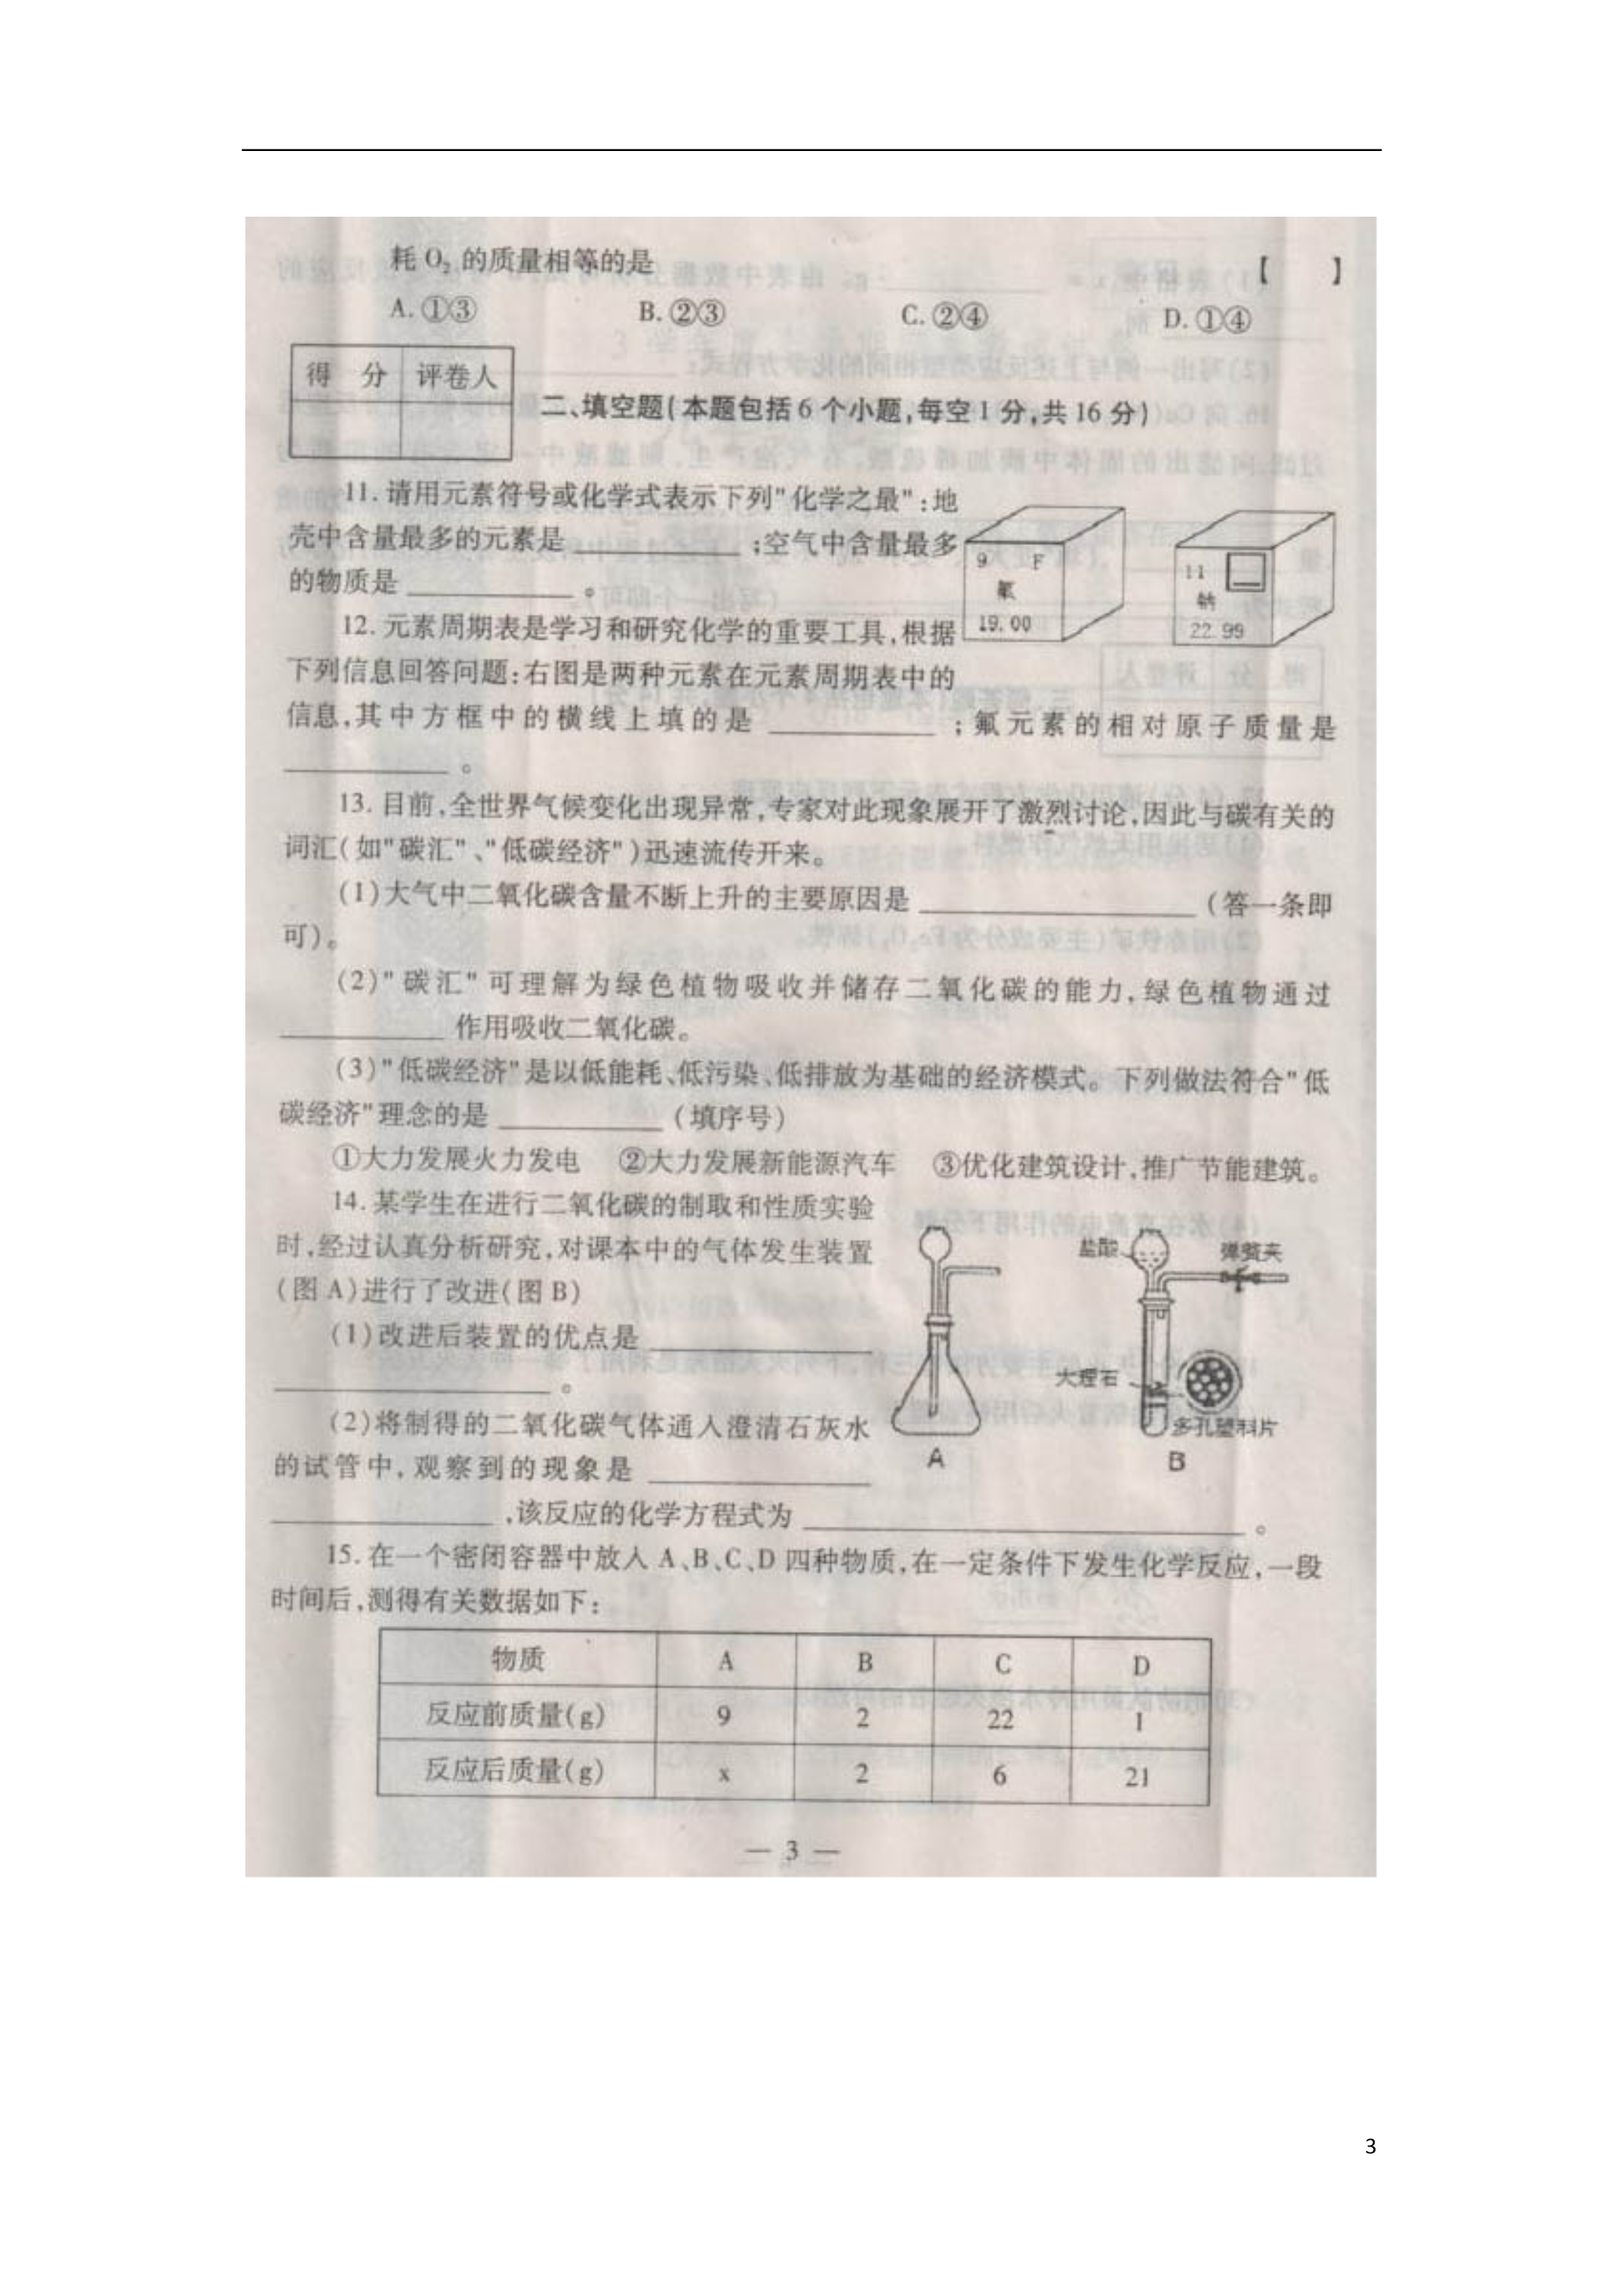 耗 O₂ 的质量相等的是 【 】
A. ①③ B. ②③ C. ②④ D. ①④
得 分 评卷人
二、填空题(本题包括 6 个小题,每空 1 分,共 16 分)
11. 请用元素符号或化学式表示下列"化学之最":地
壳中含量最多的元素是 ________ ;空气中含量最多
的物质是 ________ 。
9 F
氟
19.00
11
钠
22.99
12. 元素周期表是学习和研究化学的重要工具,根据
下列信息回答问题:右图是两种元素在元素周期表中的
信息,其中方框中的横线上填的是 ________ ;氟元素的相对原子质量是
________ 。
13. 目前,全世界气候变化出现异常,专家对此现象展开了激烈讨论,因此与碳有关的
词汇(如"碳汇"、"低碳经济")迅速流传开来。
(1)大气中二氧化碳含量不断上升的主要原因是 ________ (答一条即
可)。
(2)"碳汇"可理解为绿色植物吸收并储存二氧化碳的能力,绿色植物通过
________ 作用吸收二氧化碳。
(3)"低碳经济"是以低能耗、低污染、低排放为基础的经济模式。下列做法符合"低
碳经济"理念的是 ________ (填序号)
①大力发展火力发电 ②大力发展新能源汽车 ③优化建筑设计,推广节能建筑。
14. 某学生在进行二氧化碳的制取和性质实验
时,经过认真分析研究,对课本中的气体发生装置
(图 A)进行了改进(图 B)
(1)改进后装置的优点是 ________
________ 。
(2)将制得的二氧化碳气体通入澄清石灰水
的试管中,观察到的现象是 ________
________ ,该反应的化学方程式为 ________ 。
盐酸
弹簧夹
大理石
多孔塑料片
A
B
15. 在一个密闭容器中放入 A、B、C、D 四种物质,在一定条件下发生化学反应,一段
时间后,测得有关数据如下:
物质 A B C D
反应前质量(g) 9 2 22 1
反应后质量(g) x 2 6 21
— 3 —
3